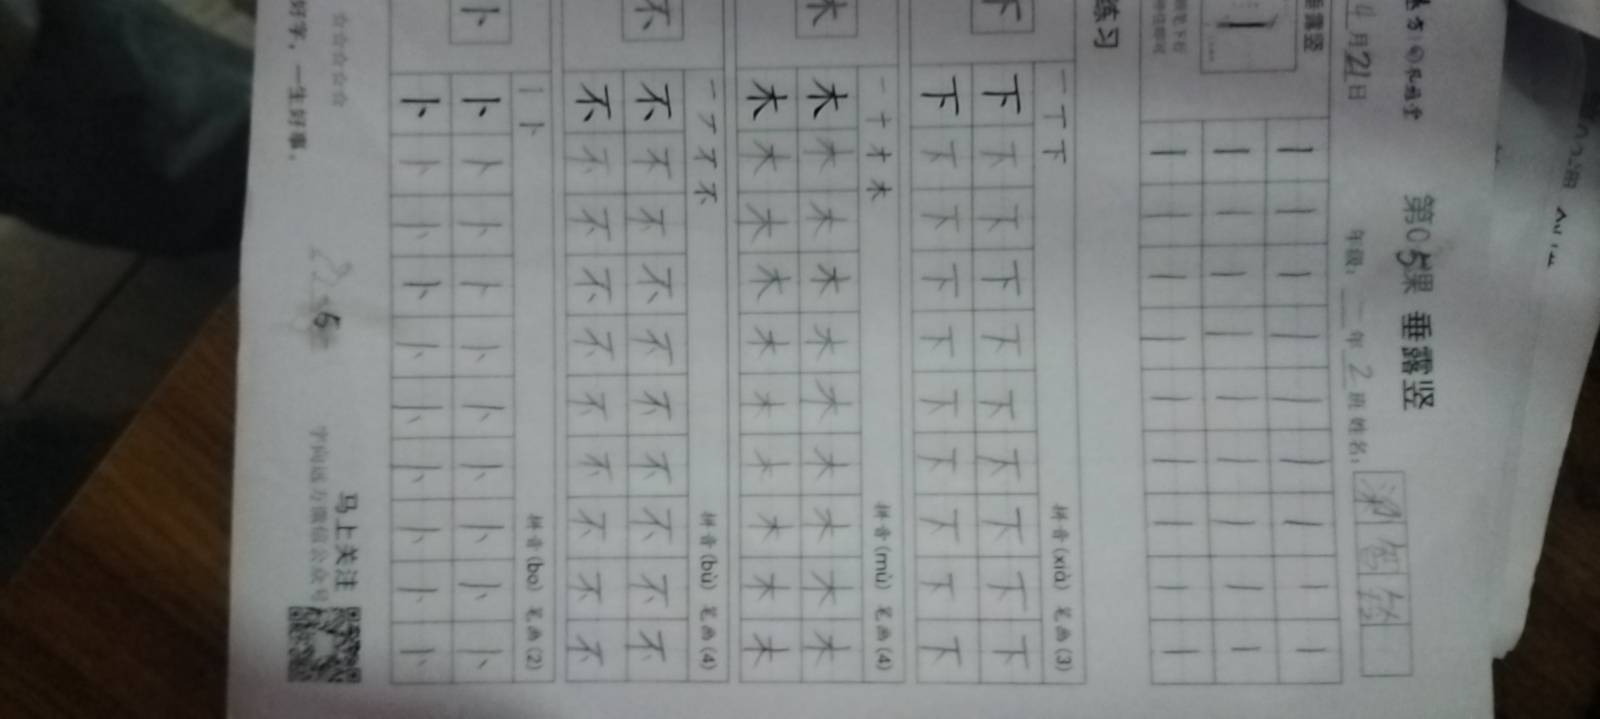 4月21日
第05课 垂露竖
年级：二年2班 姓名：
垂露竖
练习
一 丅 下 拼音(xià) 笔画(3)
下
下 下 下 下 下 下 下 下 下 下
下 下 下 下 下 下 下 下 下 下
一 十 才 木 拼音(mù) 笔画(4)
木
木 木 木 木 木 木 木 木 木 木
木 木 木 木 木 木 木 木 木 木
一 丆 不 不 拼音(bù) 笔画(4)
不
不 不 不 不 不 不 不 不 不 不
不 不 不 不 不 不 不 不 不 不
丨 卜 拼音(bo) 笔画(2)
卜
卜 卜 卜 卜 卜 卜 卜 卜 卜 卜
卜 卜 卜 卜 卜 卜 卜 卜 卜 卜
马上关注
字向远方微信公众号
好字，一生好事。